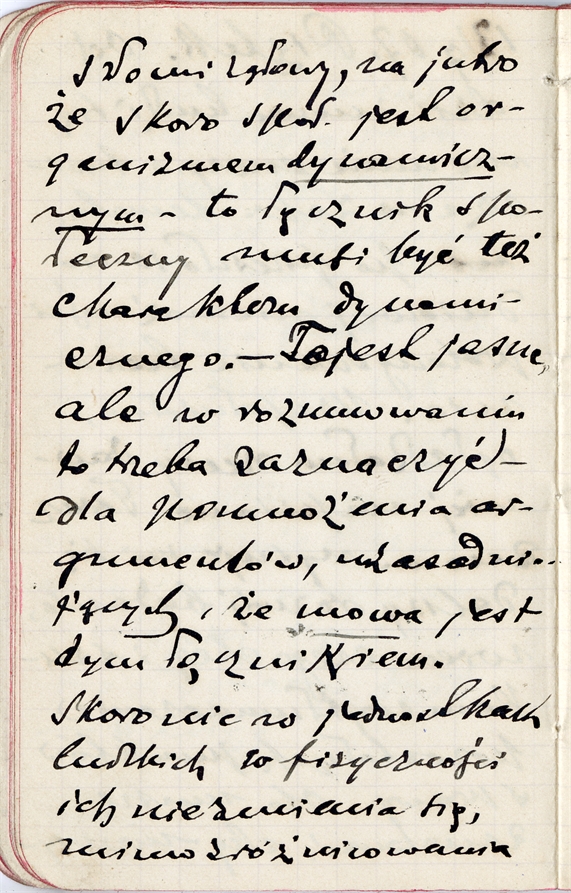 że skoro społ. jest or-
ganizmem dynamicz-
nym - to łącznik spo-
łeczny musi być też
charakteru dynami-
cznego. — To jest jasne,
ale w rozumowaniu
to trzeba zaznaczyć -
dla pomnożenia ar-
gumentów, uzasadni-
jących, że mowa jest
tym łącznikiem.
Skoro nic w jednostkach
ludzkich w fizyczności
ich nie zmienia się,
mimo zróżnicowania